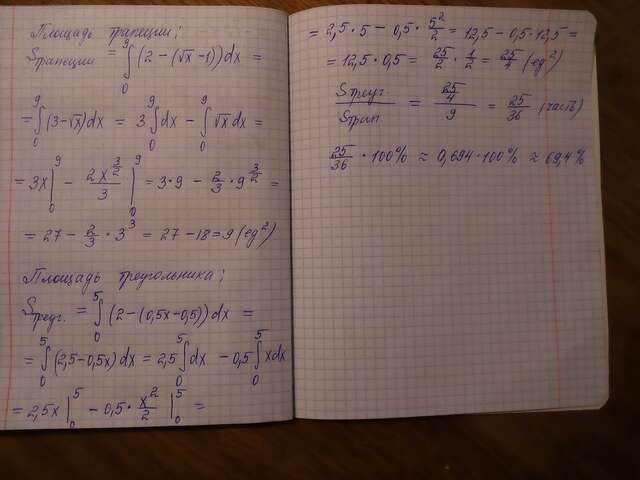 Площадь трапеции:
Sтрапеции = ∫₀⁹ (2 − (√x − 1)) dx =
= ∫₀⁹ (3 − √x) dx = 3 ∫₀⁹ dx − ∫₀⁹ √x dx =
= 3x |₀⁹ − 2x^(3/2)/3 |₀⁹ = 3·9 − 2/3 · 9^(3/2) =
= 27 − 2/3 · 3³ = 27 − 18 = 9 (ед²)
Площадь треугольника:
Sтреуг. = ∫₀⁵ (2 − (0,5x − 0,5)) dx =
= ∫₀⁵ (2,5 − 0,5x) dx = 2,5 ∫₀⁵ dx − 0,5 ∫₀⁵ x dx
= 2,5x |₀⁵ − 0,5 · x²/2 |₀⁵ =
= 2,5 · 5 − 0,5 · 5²/2 = 12,5 − 0,5 · 12,5 =
= 12,5 · 0,5 = 25/2 · 1/2 = 25/4 (ед²)
Sтреуг./Sтрап = (25/4)/9 = 25/36 (часть)
25/36 · 100% ≈ 0,694 · 100% ≈ 69,4%